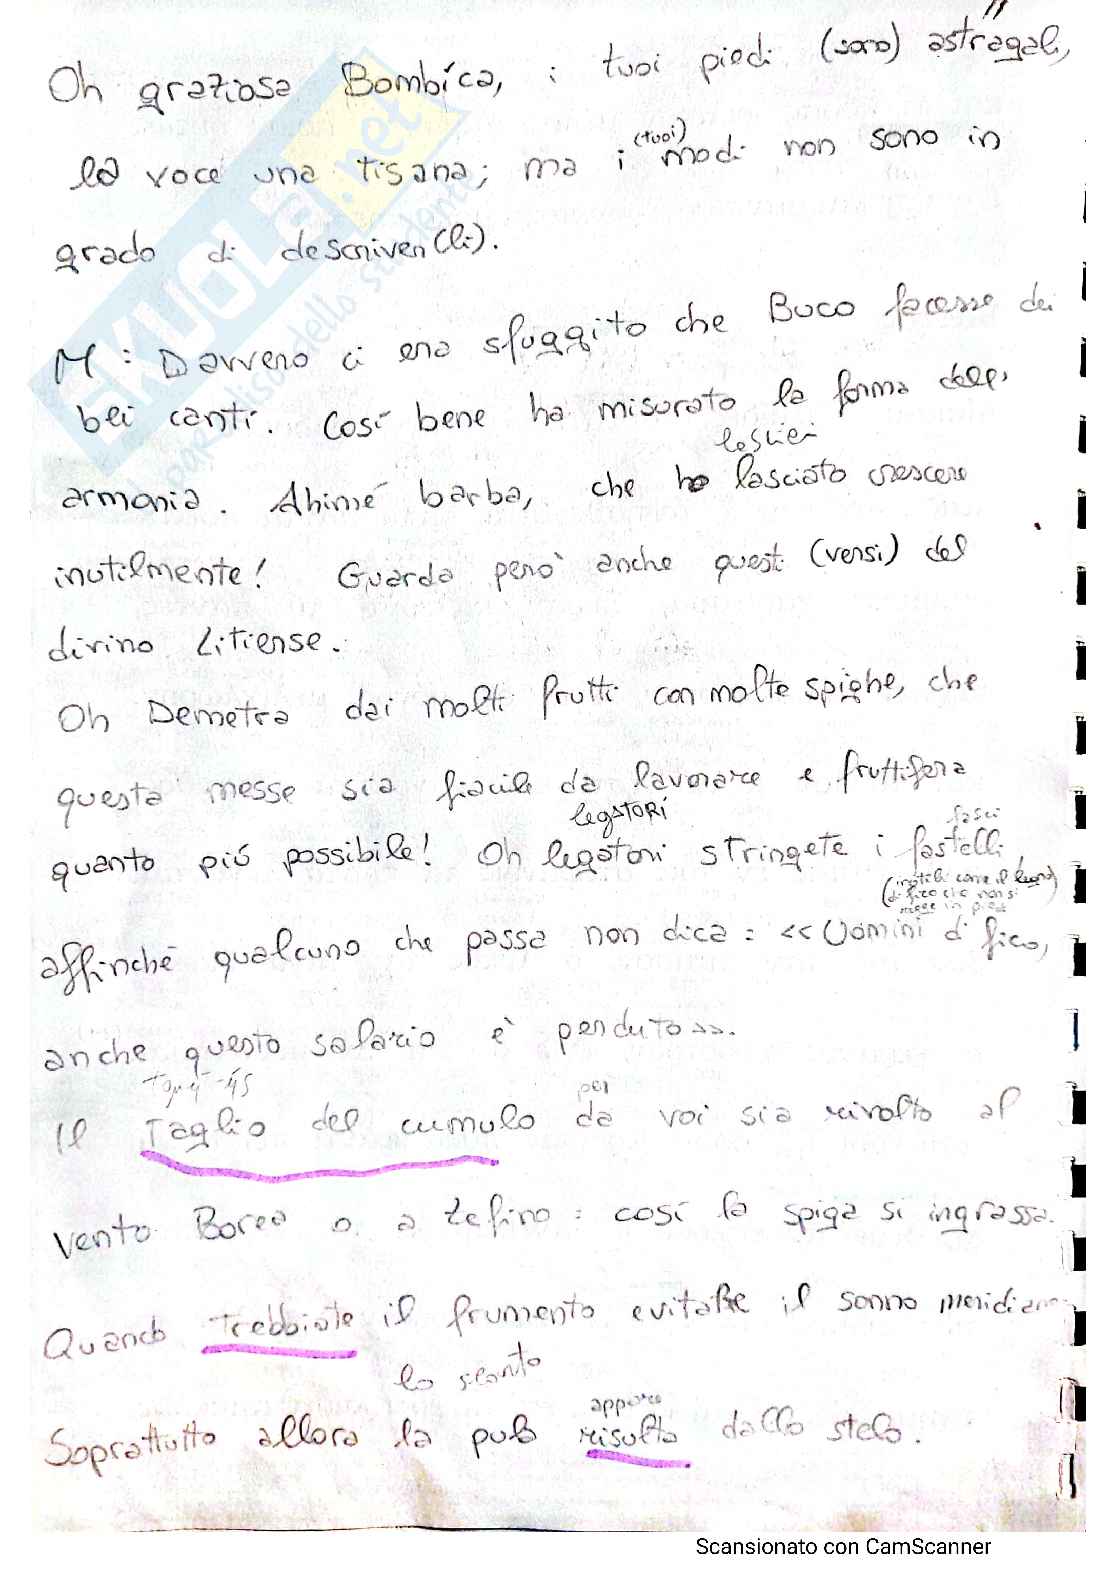 Oh graziosa Bombíca, i tuoi piedi (sono) astràgali,
la voce una tisana; ma i (tuoi) modi non sono in
grado di descriver(li).
M: Davvero ci era sfuggito che Buco facesse dei
bei canti. Cosí bene ha misurato la forma dell'
lasciai
armonia. Ahimé barba, che ho lasciato crescere
inutilmente! Guarda però anche questi (versi) del
divino Litiense.
Oh Demetra dai molti frutti con molte spighe, che
questa messe sia facile da lavorare e fruttifera
legatori fasci
quanto piú possibile! Oh legatori stringete i fastelli,
(inutili come il legno
di fico che non si
regge in piedi)
affinché qualcuno che passa non dica: <<Uomini di fico,
anche questo salario è perduto>>.
per
Il Taglio del cumulo da voi sia rivolto al
vento Borea o a Zefiro: cosí la spiga si ingrassa.
Quando trebbiate il frumento evitate il sonno meridiano
lo scarto
appare
Soprattutto allora la pula risulta dallo stelo.
SKUOLA.net
paradiso dello studente
Scansionato con CamScanner